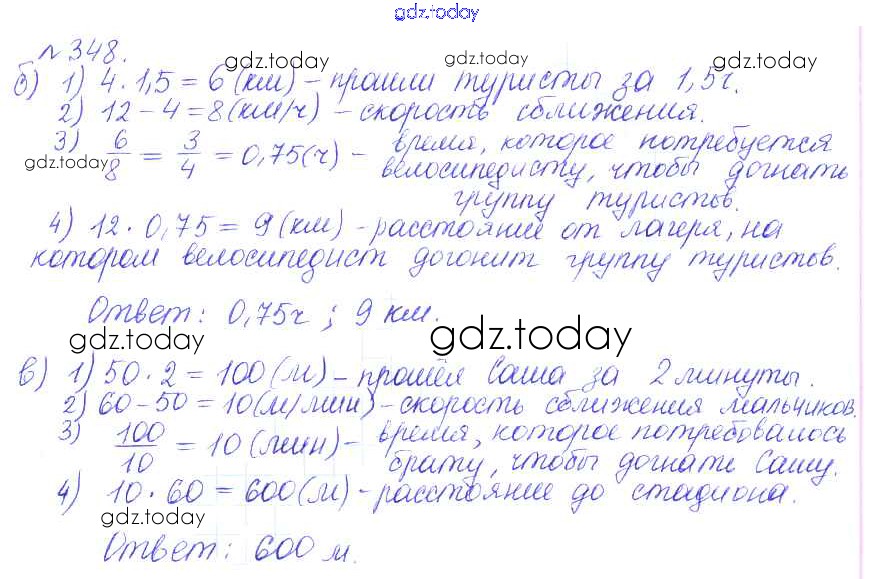 gdz.today
№348.
gdz.today
gdz.today
б) 1) 4 · 1,5 = 6 (км) – прошли туристы за 1,5ч.
2) 12 – 4 = 8 (км/ч) – скорость сближения.
3) 6/8 = 3/4 = 0,75(ч) – время, которое потребуется
gdz.today
велосипедисту, чтобы догнать
группу туристов.
4) 12 · 0,75 = 9 (км) – расстояние от лагеря, на
котором велосипедист догонит группу туристов.
Ответ: 0,75ч ; 9 км.
gdz.today
gdz.today
в) 1) 50 · 2 = 100 (м) – прошёл Саша за 2 минуты.
2) 60 – 50 = 10 (м/мин) – скорость сближения мальчиков.
3) 100/10 = 10 (мин) – время, которое потребовалось
брату, чтобы догнать Сашу.
4) 10 · 60 = 600 (м) – расстояние до стадиона.
gdz.today
gdz.today
Ответ: 600 м.